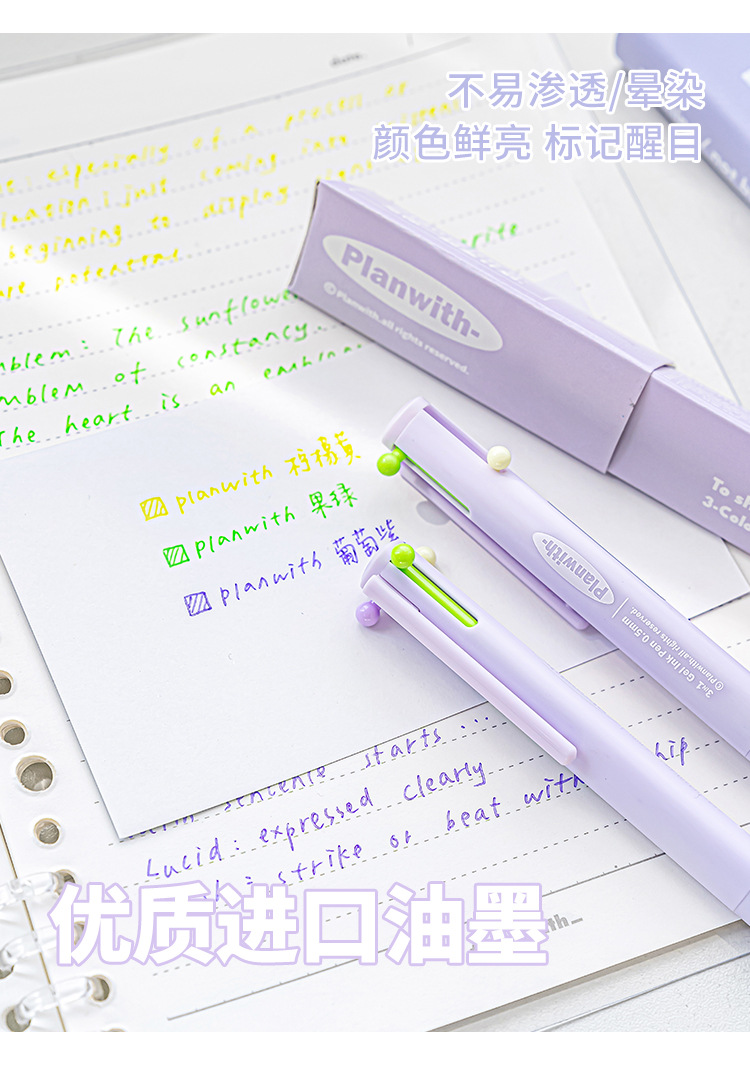 不易渗透/晕染
颜色鲜亮 标记醒目
date.
especially of a
just coming into
beginning to display
are potential
Planwith-
©Planwith.all rights reserved.
The sunflower
emblem of constancy.
The heart is an
planwith 柠檬黄
planwith 果绿
planwith 葡萄紫
Planwith-
3in1 Gel Ink Pen 0.5mm
©Planwith.all rights reserved.
To
3-Colo
sentence starts...
Lucid: expressed clearly
strike or beat with
hip
优质进口油墨